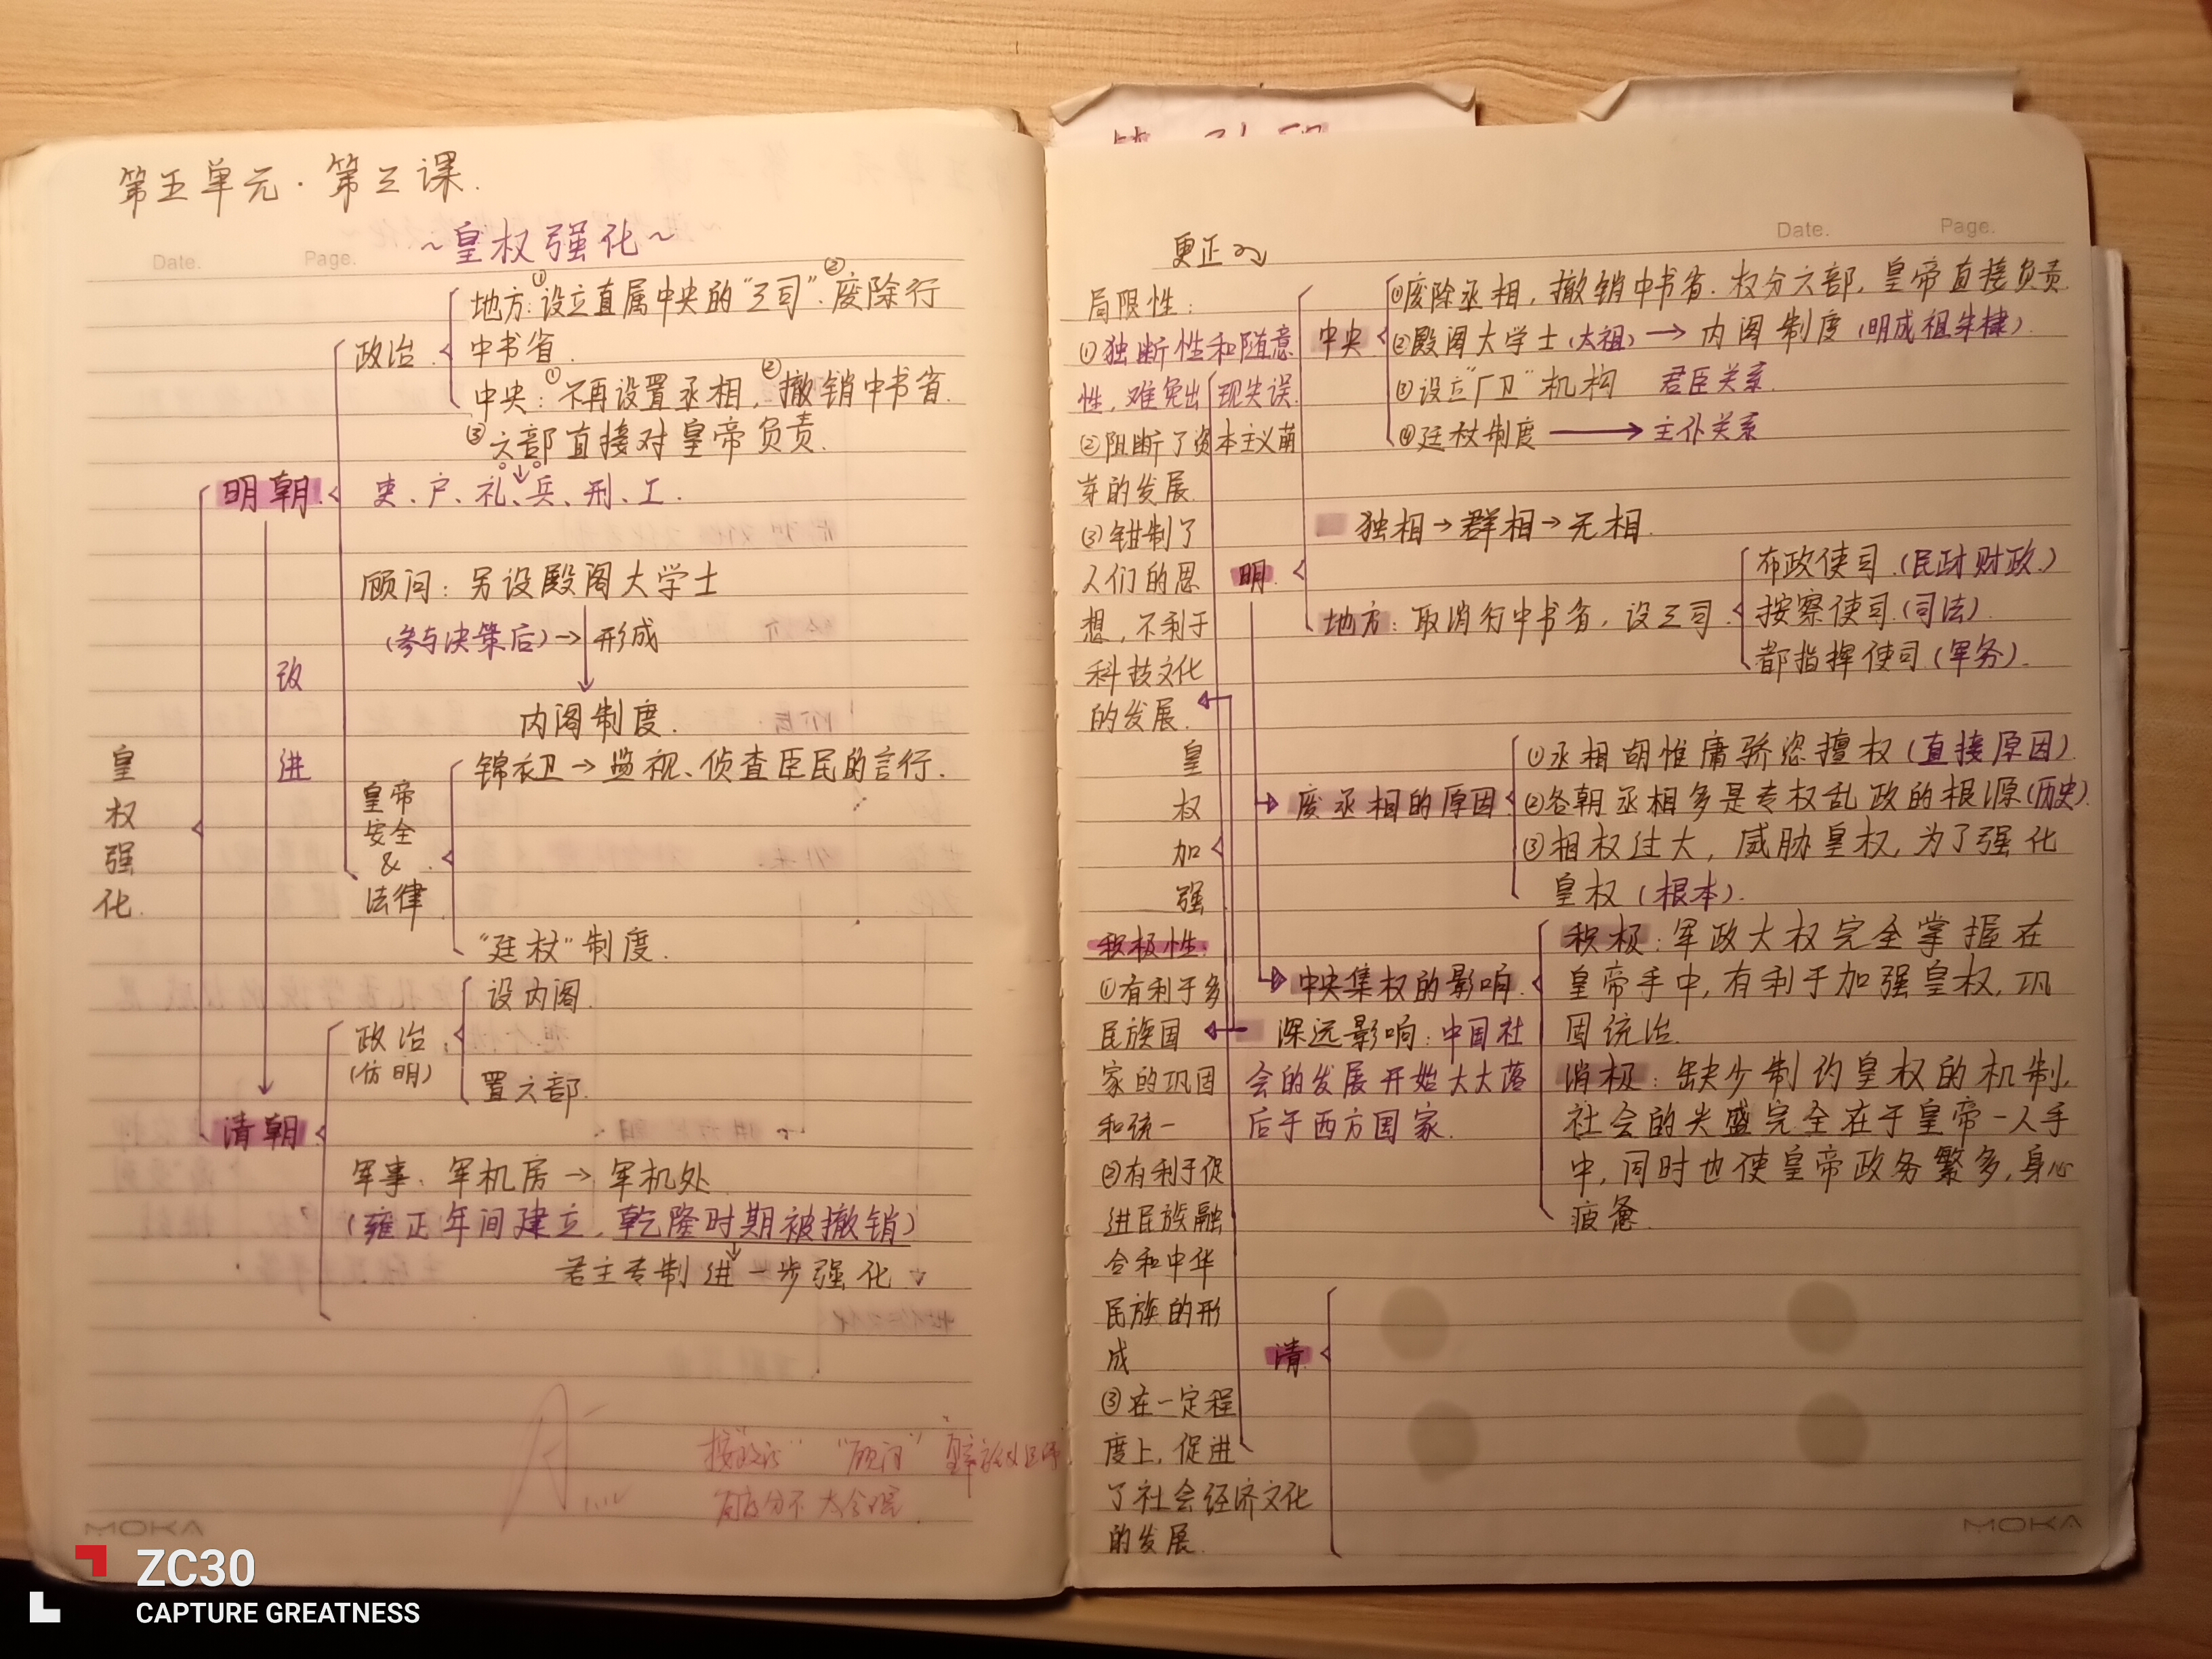 第五单元·第三课.
~皇权强化~
Date.
Page.
地方:①设立直属中央的“三司”.②废除行
中书省.
政治
中央:①不再设置丞相,②撤销中书省.
③六部直接对皇帝负责.
明朝
吏、户、礼、兵、刑、工.
顾问:另设殿阁大学士
(参与决策后)→形成
内阁制度.
改
进
锦衣卫→监视、侦查臣民的言行.
皇帝
安全
&
法律
“廷杖”制度.
皇
权
强
化
设内阁.
政治
(仿明)
置六部.
清朝
军事.军机房→军机处
(雍正年间建立,乾隆时期被撤销)
君主专制进一步强化
MOKA
更正
Date.
Page.
局限性:
①独断性和随意
性,难免出现失误.
②阻断了资本主义萌
芽的发展
③钳制了
人们的思
想,不利于
科技文化
的发展.
皇
权
加
强
积极性:
①有利于多
民族国
家的巩固
和统一
②有利于促
进民族融
合和中华
民族的形
成
③在一定程
度上,促进
了社会经济文化
的发展.
中央
①废除丞相,撤销中书省.权分六部,皇帝直接负责.
②殿阁大学士(太祖)→内阁制度(明成祖朱棣).
③设立“厂卫”机构 君臣关系.
④廷杖制度→主仆关系
独相→群相→无相.
明
地方:取消行中书省,设三司.
布政使司.(民政财政.)
按察使司.(司法).
都指挥使司(军务).
废丞相的原因
①丞相胡惟庸骄恣擅权(直接原因).
②各朝丞相多是专权乱政的根源(历史).
③相权过大,威胁皇权,为了强化
皇权(根本).
中央集权的影响.
积极:军政大权完全掌握在
皇帝手中,有利于加强皇权,巩
固统治.
消极:缺少制约皇权的机制,
社会的兴盛完全在于皇帝一人手
中,同时也使皇帝政务繁多,身心
疲惫.
深远影响:中国社
会的发展开始大大落
后于西方国家.
清
MOKA
ZC30
CAPTURE GREATNESS